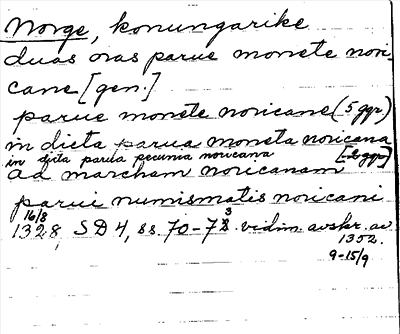 Norge, konungarike
duas oras parue monete nori-
cane [gen.]
parue monete noricane (5 ggr)
in dicta parua moneta noricana
in dicta parua pecunia noricana [2 ggr]
ad marcham noricanam
parui numismatis noricani
16/8
1328, SD 4, ss. 70-73 vidim. avskr. av
1352.
9-15/9